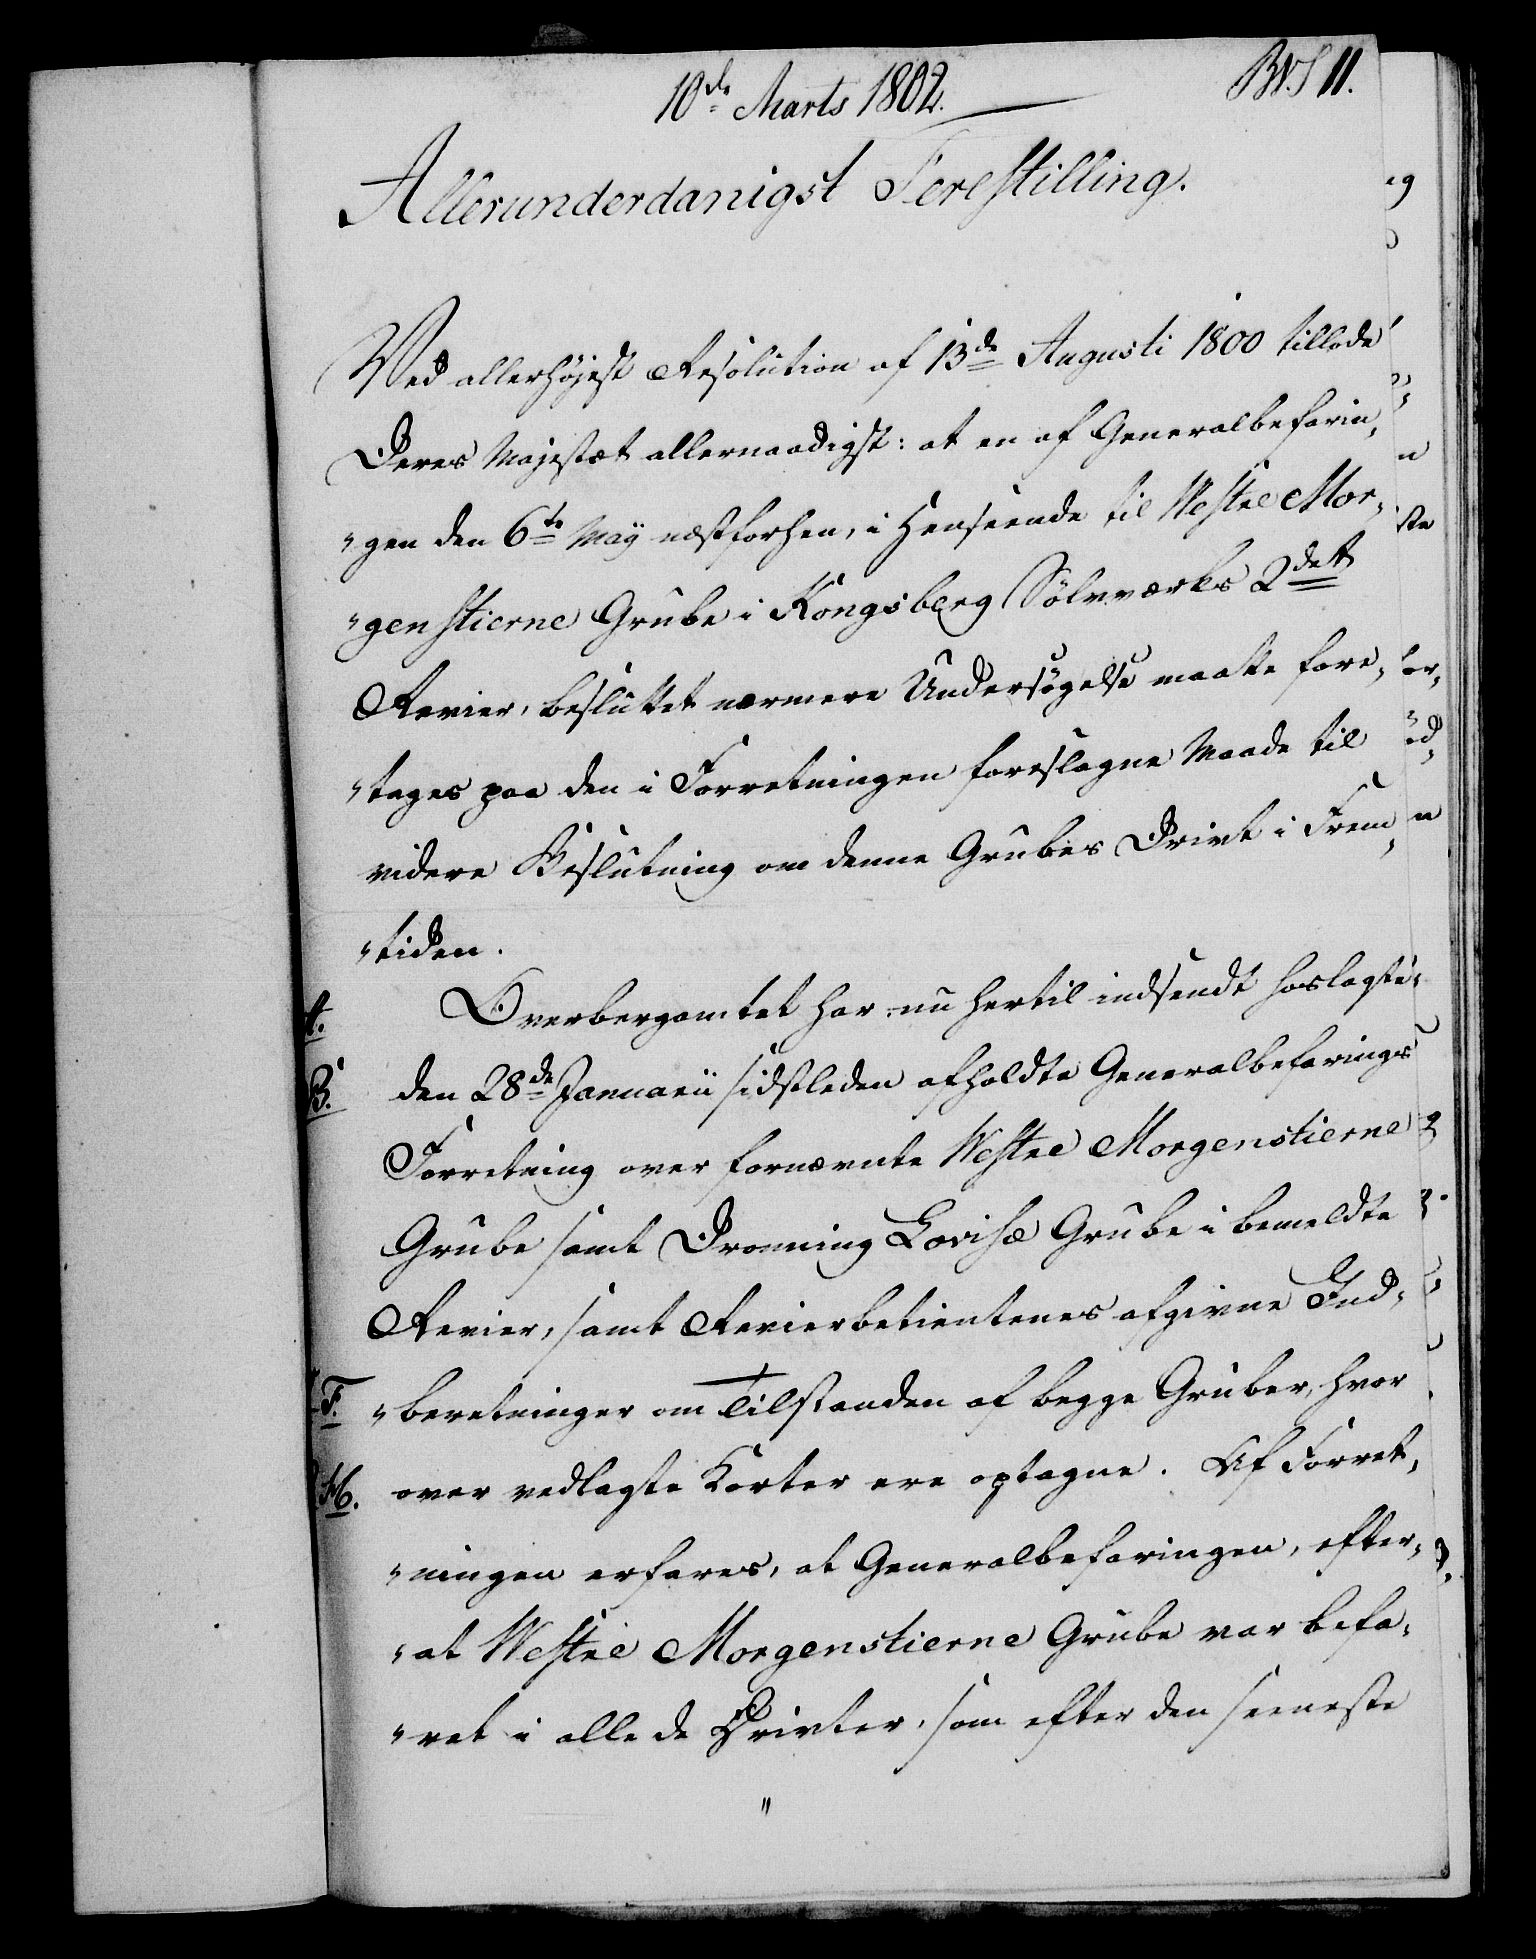 10de Marts 1802.
BVS 11.
Allerunderdanigst Forestilling.
Ved allerhøjest Resolution af 13de Augusti 1800 tillode
Deres Majestæt allernaadigst: at en af Generalbefarin„
„gen den 6te Maÿ næstforhen, i Henseende til Vestre Mor„
„genstierne Grube i Kongsberg Sölvværks 2det
Revier, besluttet nærmere Undersøgelse maatte fore„
„tages paa den i Forretningen foreslagne Maade til
videre Beslutning om denne Grubes Drivt i Frem„
„tiden.
A. Overbergamtet har nu hertil indsendt hoslagte„
B. den 28de Januarii sidstleden afholdte Generalbefarings
Forretning over fornævnte Vestre Morgenstierne
Grube samt Dronning Lovisæ Grube i bemeldte
Revier, samt Revierbetienternes afgivne Ind„
F. „beretninger om Tilstanden af begge Gruber, hvor
H. over vedlagte Karter ere optagne. Af Forret„
„ningen erfares, at Generalbefaringen, efter„
„at Vestre Morgenstierne Grube var befa„
„ret i alle de Drivter, som efter den seeneste
„